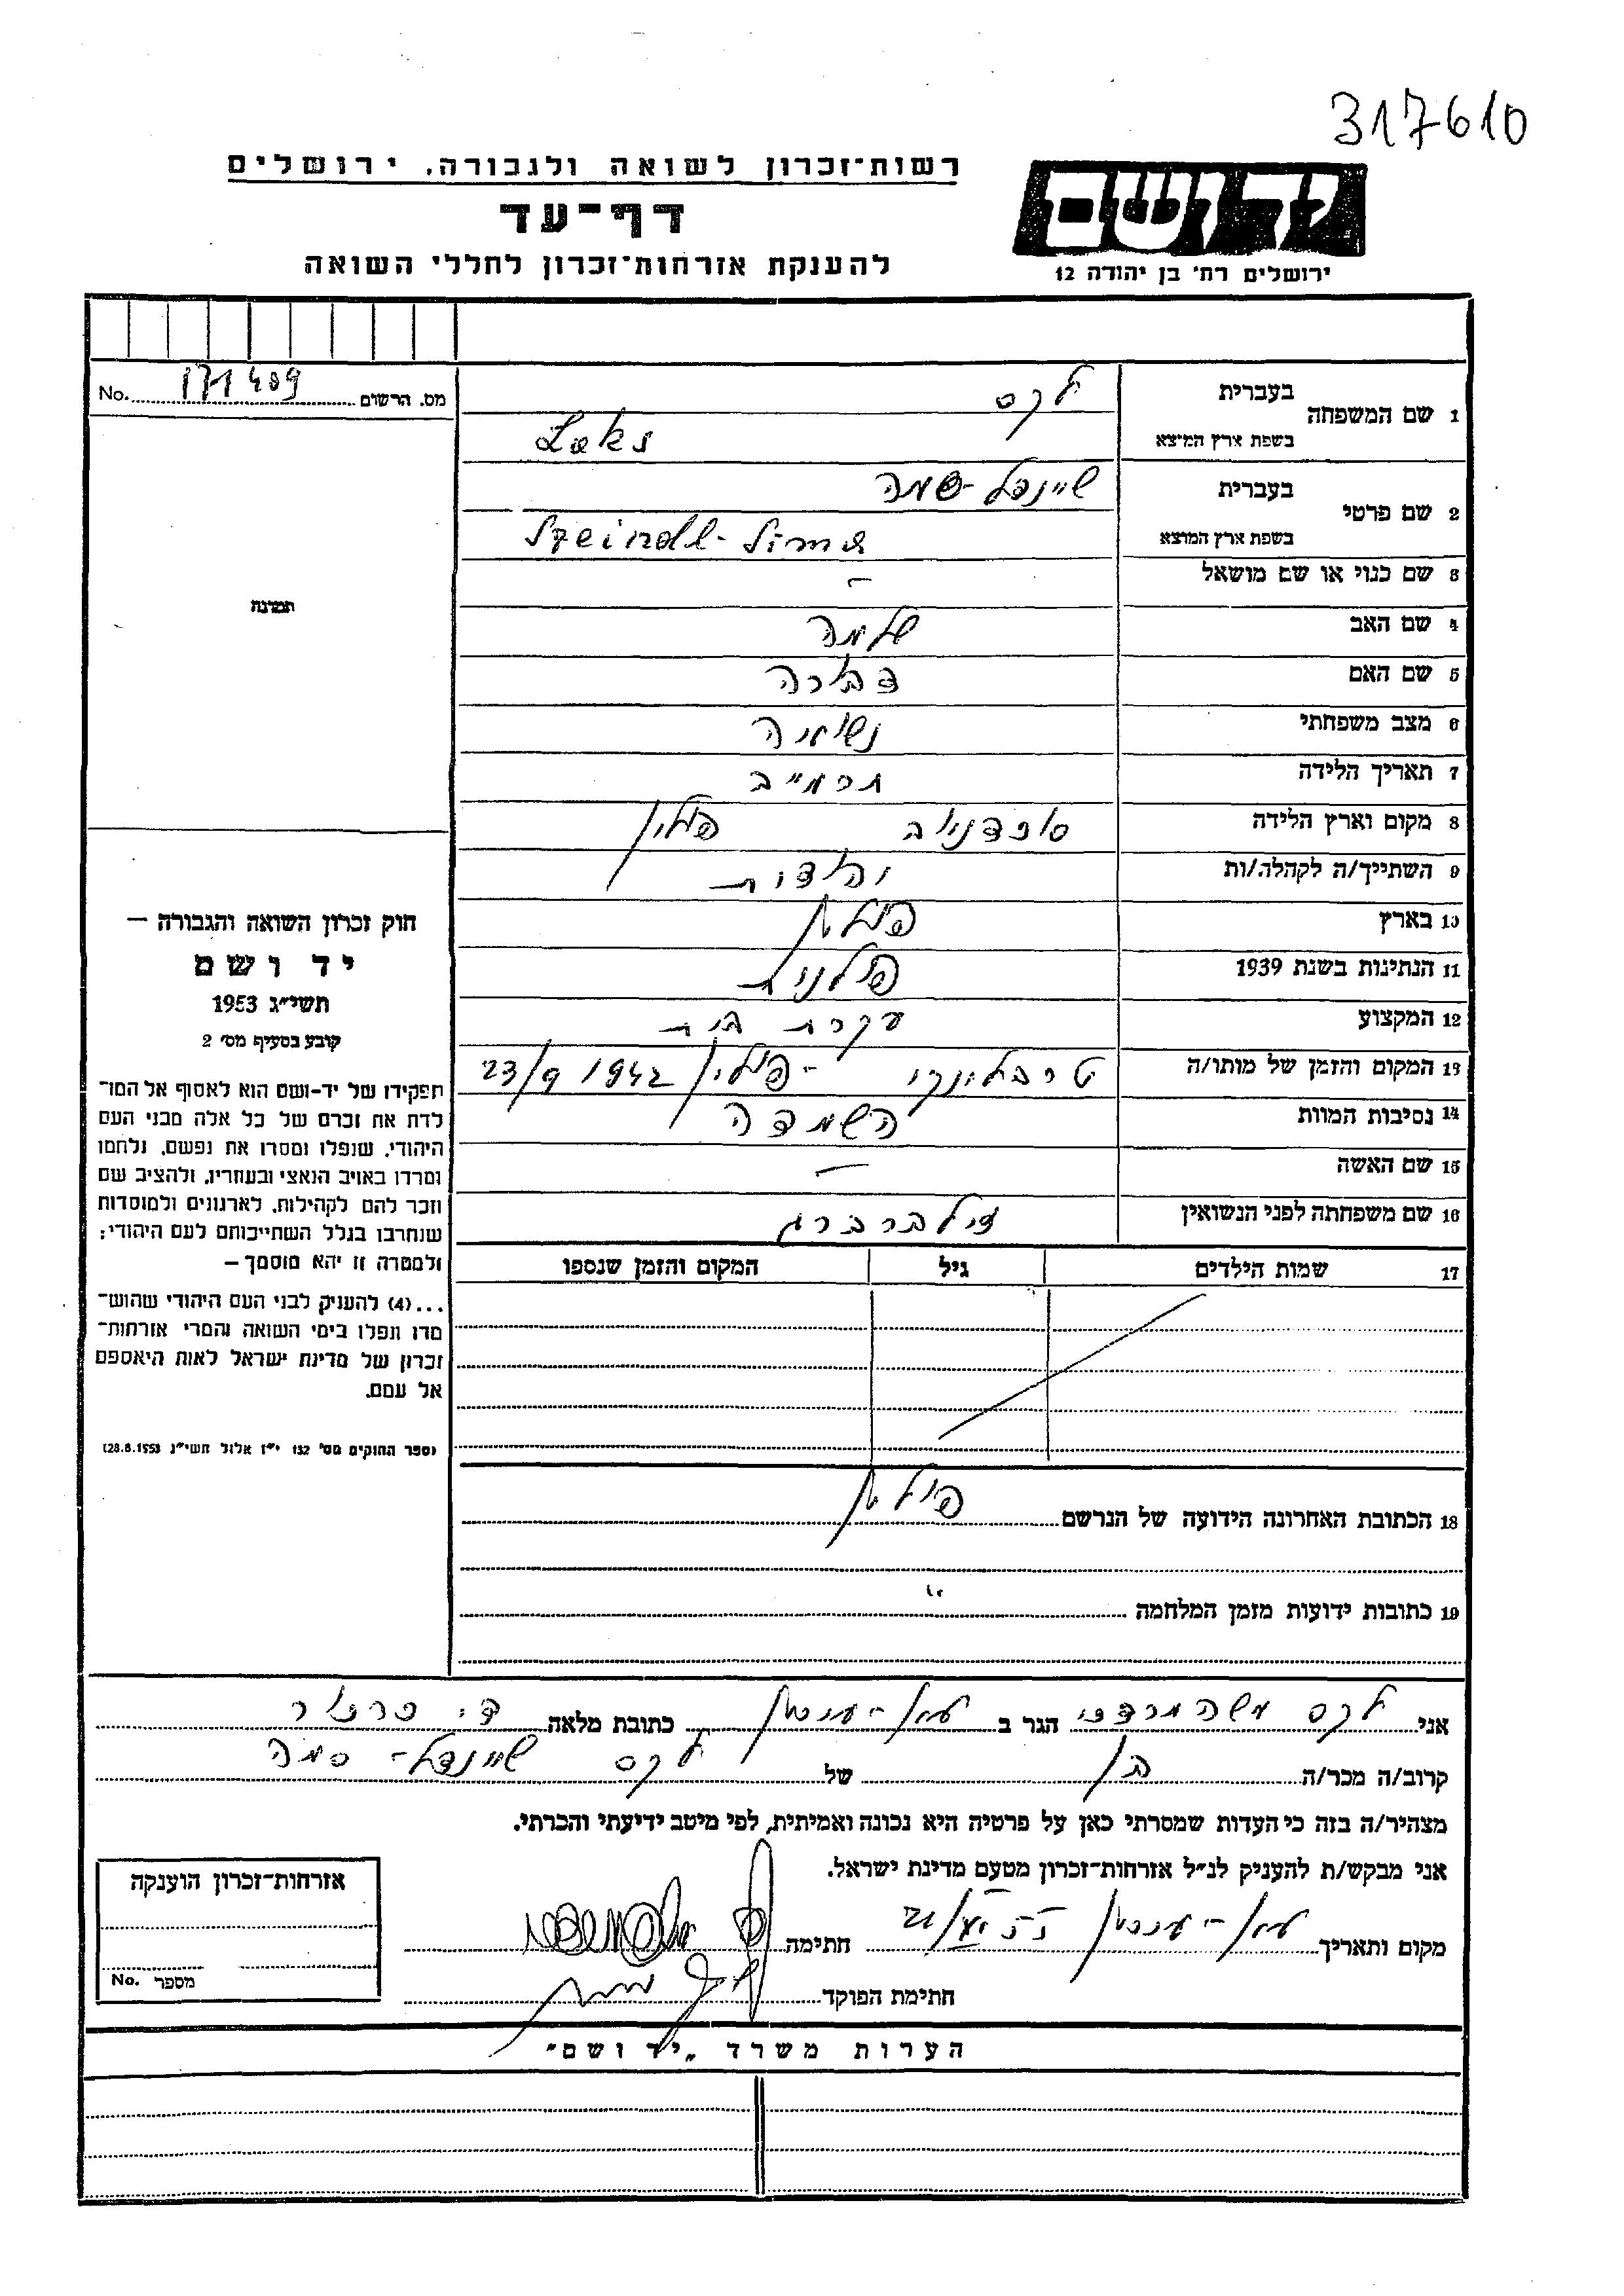 317610
רשות־זכרון לשואה ולגבורה, ירושלים
ידושם
דף־עד
להענקת אזרחות־זכרון לחללי השואה
ירושלים רח' בן יהודה 12
מס. הרשום 171409 No.
1 שם המשפחה
בעברית לקס
בשפת ארץ המוצא Laks
2 שם פרטי
בעברית שיינדל-סימה
בשפת ארץ המוצא Szeindl-Sima
3 שם כנוי או שם מושאל –
תמונה
4 שם האב שלמה
5 שם האם דבורה
6 מצב משפחתי נשואה
7 תאריך הלידה תרמ״ב
8 מקום וארץ הלידה פולין
9 השתייך/ה לקהלה/ות יהדות
10 בארץ פולין
11 הנתינות בשנת 1939 פולנית
12 המקצוע עקרת בית
13 המקום והזמן של מותו/ה טרבלינקי - פולין 23/9 1942
14 נסיבות המוות השמדה
15 שם האשה –
16 שם משפחתה לפני הנשואין זילברברג
17 שמות הילדים גיל המקום והזמן שנספו
חוק זכרון השואה והגבורה –
יד ושם
תשי״ג 1953
קובע בסעיף מס' 2
תפקידו של יד-ושם הוא לאסוף אל המו־
לדת את זכרם של כל אלה מבני העם
היהודי, שנפלו ומסרו את נפשם, נלחמו
ומרדו באויב הנאצי ובעוזריו, ולהציב שם
וזכר להם לקהילות, לארגונים ולמוסדות
שנחרבו בגלל השתייכותם לעם היהודי;
ולמטרה זו יהא מוסמך –
...(4) להעניק לבני העם היהודי שהוש־
מדו ונפלו בימי השואה והמרי אזרחות־
זכרון של מדינת ישראל לאות היאספם
אל עמם.
(ספר החוקים מס' 132 י״ז אלול תשי״ג 28.8.1953)
18 הכתובת האחרונה הידועה של הנרשם פולין
19 כתובות ידועות מזמן המלחמה "
אני לקס משה מרדכי הגר ב כתובת מלאה
קרוב/ה מכר/ה בן של לקס שיינדל - סמה
מצהיר/ה בזה כי העדות שמסרתי כאן על פרטיה היא נכונה ואמיתית, לפי מיטב ידיעתי והכרתי.
אני מבקש/ת להעניק לנ״ל אזרחות־זכרון מטעם מדינת ישראל.
מקום ותאריך חתימה
חתימת הפוקד
אזרחות־זכרון הוענקה
מספר No.
הערות משרד „יד ושם"